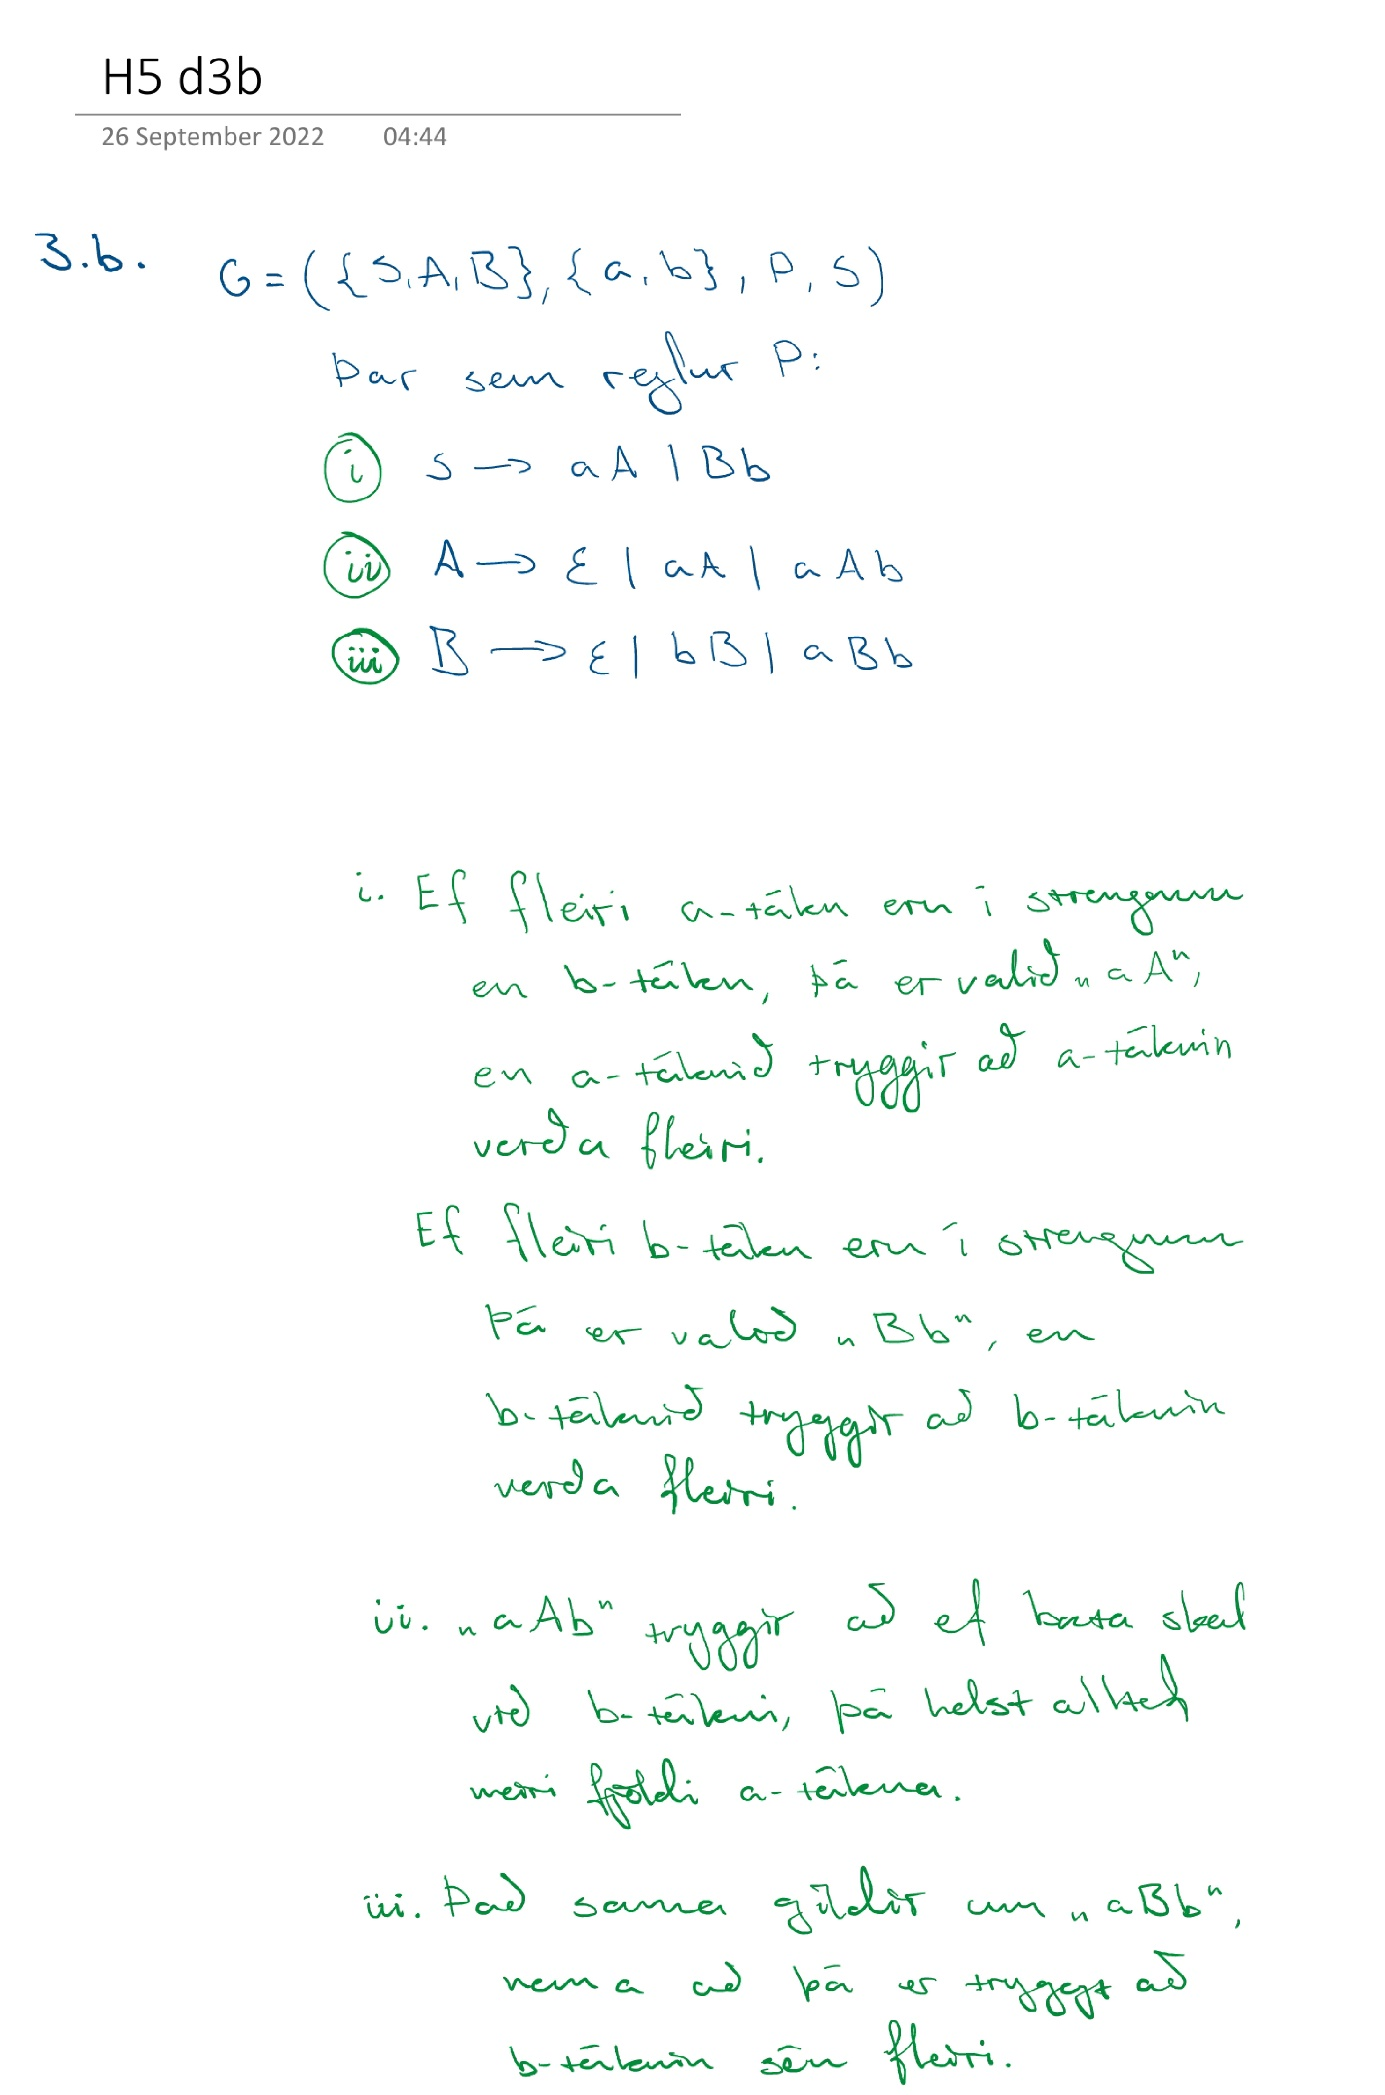 H5 d3b
26 September 2022 04:44
3.b. G = ({S,A,B}, {a,b}, P, S)
Þar sem reglur P:
i S → aA | Bb
ii A → ε | aA | aAb
iii B → ε | bB | aBb
i. Ef fleiri a-tákn eru í strengnum
en b-tákn, þá er valið „aA",
en a-táknið tryggir að a-táknin
verða fleiri.
Ef fleiri b-tákn eru í strengnum
þá er valið „Bb", en
b-táknið tryggir að b-táknin
verða fleiri.
ii. „aAb" tryggir að ef bæta skal
við b-tákni, þá helst alltaf
meiri fjöldi a-tákna.
iii. Það sama gildir um „aBb",
nema að þá er tryggt að
b-táknin séu fleiri.